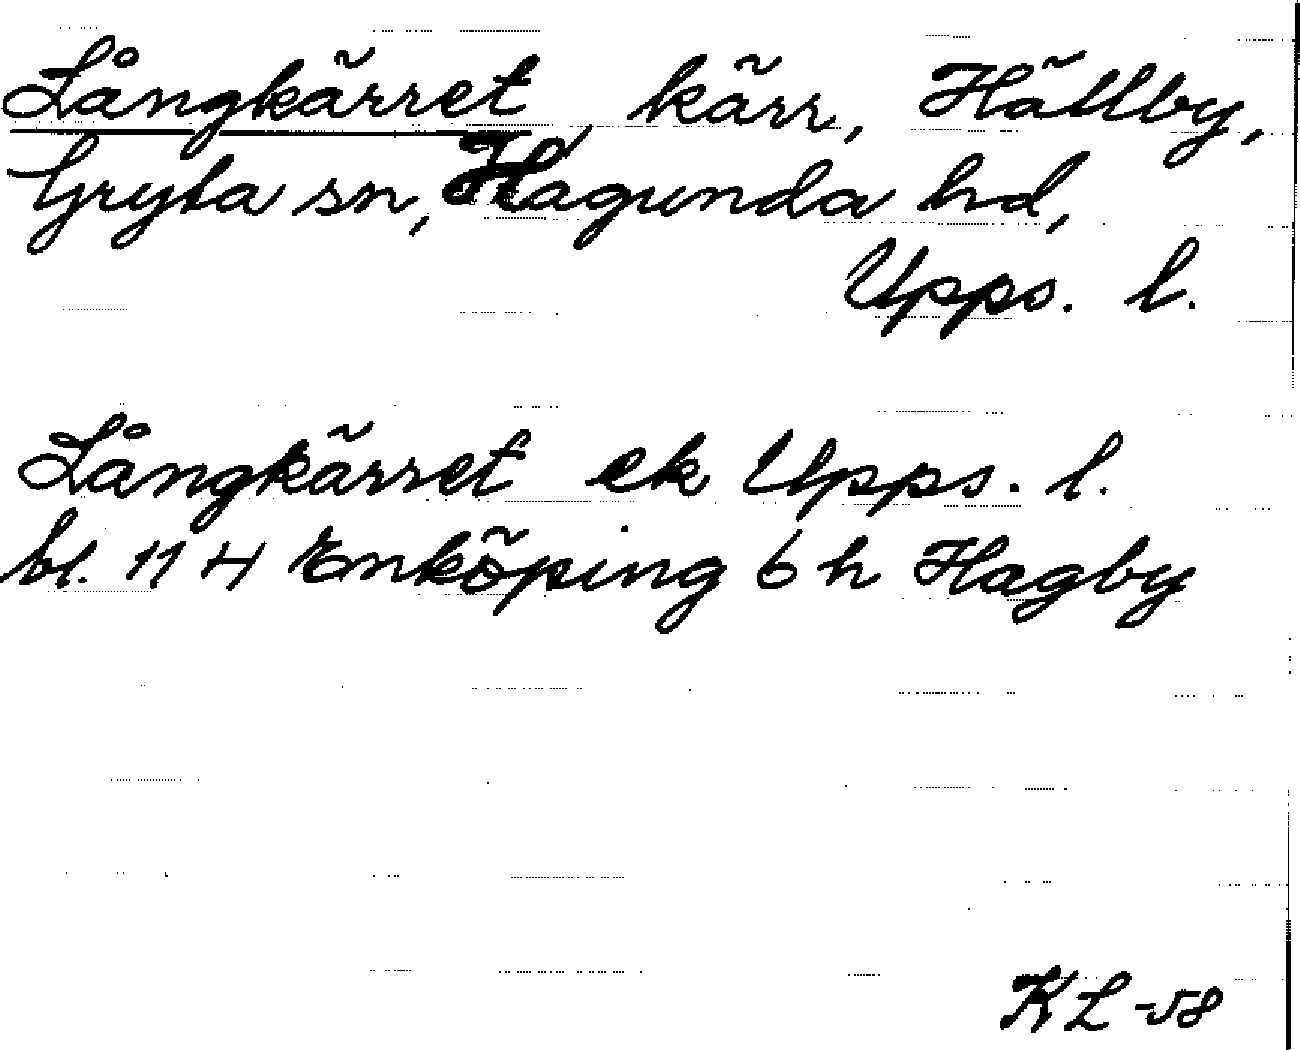 Långkärret, kärr, Hällby,
Gryta sn, Hagunda hd,
Upps. l.
Långkärret ek Upps. l.
bl. 114 Enköping 6h Hagby
KL-58